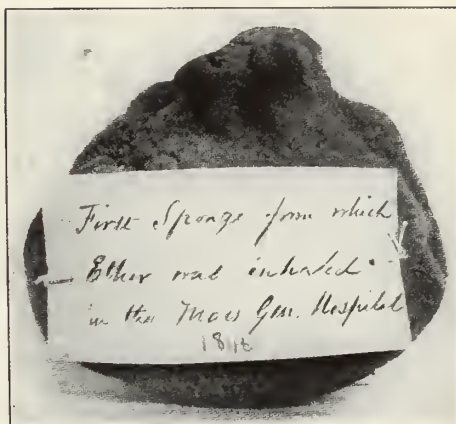 First Sponge from which
Ether was inhaled
in the Mass Gen. Hospital
1846